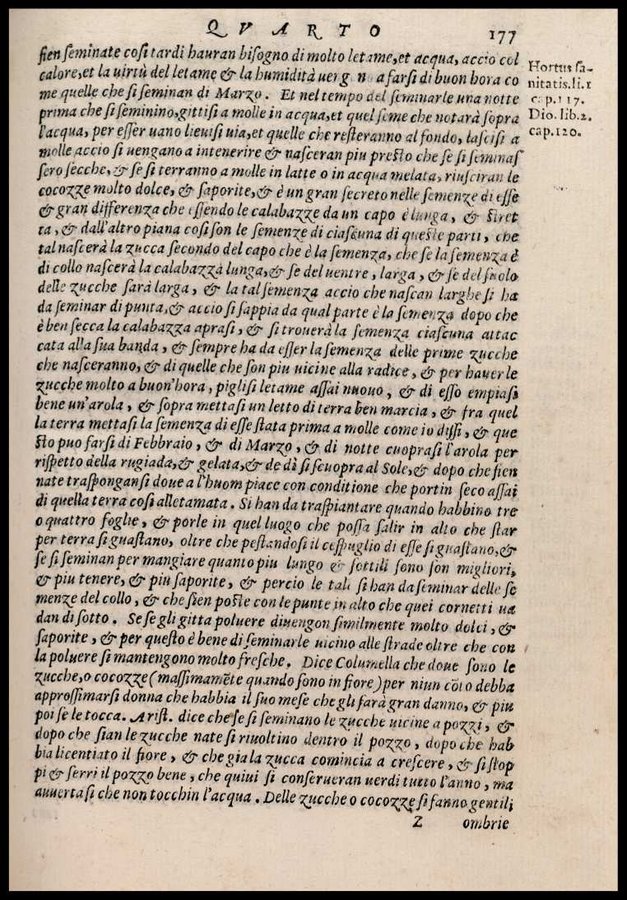 QVARTO 177
sien seminate cosi tardi hauran bisogno di molto letame, et acqua, accio col
calore, et la uirtù del letame & la humidità uengano a farsi di buon hora co
me quelle che si seminan di Marzo. Et nel tempo del seminarle una notte
prima che si seminino, gittisi a molle in acqua, et quel seme che notarà sopra
l'acqua, per esser uano lieuisi uia, et quelle che resteranno al fondo, lascisi a
molle accio si uengano a intenerire & nasceran piu presto che se si seminas
sero secche, & se si terranno a molle in latte o in acqua melata, riusciran le
cocozze molto dolce, & saporite, & è un gran secreto nelle semenze di esse
& gran differenza che essendo le calabazze da un capo è lunga, & stret
ta, & dall'altro piana cosi son le semenze di ciascuna di queste parti, che
tal nascerà la zucca secondo del capo che è la semenza, che se la semenza è
di collo nascerà la calabazzà lunga, & se del uentre, larga, & se del suolo
delle zucche sarà larga, & la tal semenza accio che nascan larghe si ha
da seminar di punta, & accio si sappia da qual parte è la semenza dopo che
è ben secca la calabazza aprasi, & si trouerà la semenza ciascuna attac
cata alla sua banda, & sempre ha da esser la semenza delle prime zucche
che nasceranno, & di quelle che son piu uicine alla radice, & per hauerle
zucche molto a buon'hora, piglisi letame assai nuouo, & di esso empiasi
bene un'arola, & sopra mettasi un letto di terra ben marcia, & fra quel
la terra mettasi la semenza di esse stata prima a molle come io dissi, & que
sto puo farsi di Febbraio, & di Marzo, & di notte cuoprasi l'arola per
rispetto della rugiada, & gelata, & de dì si scuopra al Sole, & dopo che sien
nate traspongansi doue a l'huom piace con conditione che portin seco assai
di quella terra cosi alletamata. Si han da traspiantare quando habbino tre
o quattro foglie, & porle in quel luogo che possa salir in alto che star
per terra si guastano, oltre che pestandosi il cespuglio di esse si guastano, &
se si seminan per mangiare quanto piu lungo & sottili sono son migliori,
& piu tenere, & piu saporite, & percio le tali si han da seminar delle se
menze del collo, & che sien poste con le punte in alto che quei cornetti ua
dan di sotto. Se se gli gitta poluere diuengon similmente molto dolci, &
saporite, & per questo è bene di seminarle uicino alle strade oltre che con
la poluere si mantengono molto fresche. Dice Columella che doue sono le
zucche, o cocozze (massimamēte quando sono in fiore) per niun cōto debba
approssimarsi donna che habbia il suo mese che gli farà gran danno, & piu
poi se le tocca. Arist. dice che se si seminano le zucche uicine a pozzi, &
dopo che sian le zucche nate si riuoltino dentro il pozzo, dopo che hab
bia licentiato il fiore, & che gia la zucca comincia a crescere, & si stop
pi & serri il pozzo bene, che quiui si conserueran uerdi tutto l'anno, ma
auuertasi che non tocchin l'acqua. Delle zucche o cocozze si fanno gentili
Z ombrie
Hortus sa-
nitatis. li. 1
cap. 117.
Dio. lib. 2.
cap. 120.